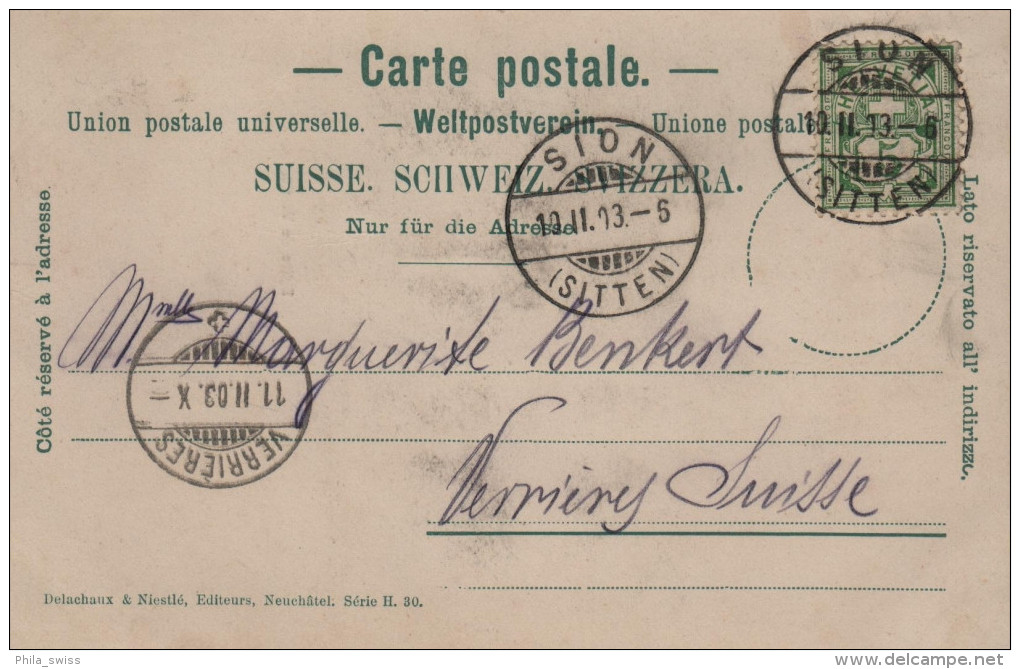 — Carte postale. —
Union postale universelle. — Weltpostverein. — Unione postale
SUISSE. SCHWEIZ. SVIZZERA.
Nur für die Adresse.
Côté réservé à l'adresse
Lato riservato all' indirizzo.
SION
10.II.03.–6
(SITTEN)
SION
10.II.03.–6
(SITTEN)
HELVETIA
FRANCO
Mmelle Marguerite Benkert
Verrières Suisse
11.II.03.X–
VERRIÈRES
Delachaux & Niestlé, Editeurs, Neuchâtel. Série H. 30.
Phila_swiss
delcampe.net